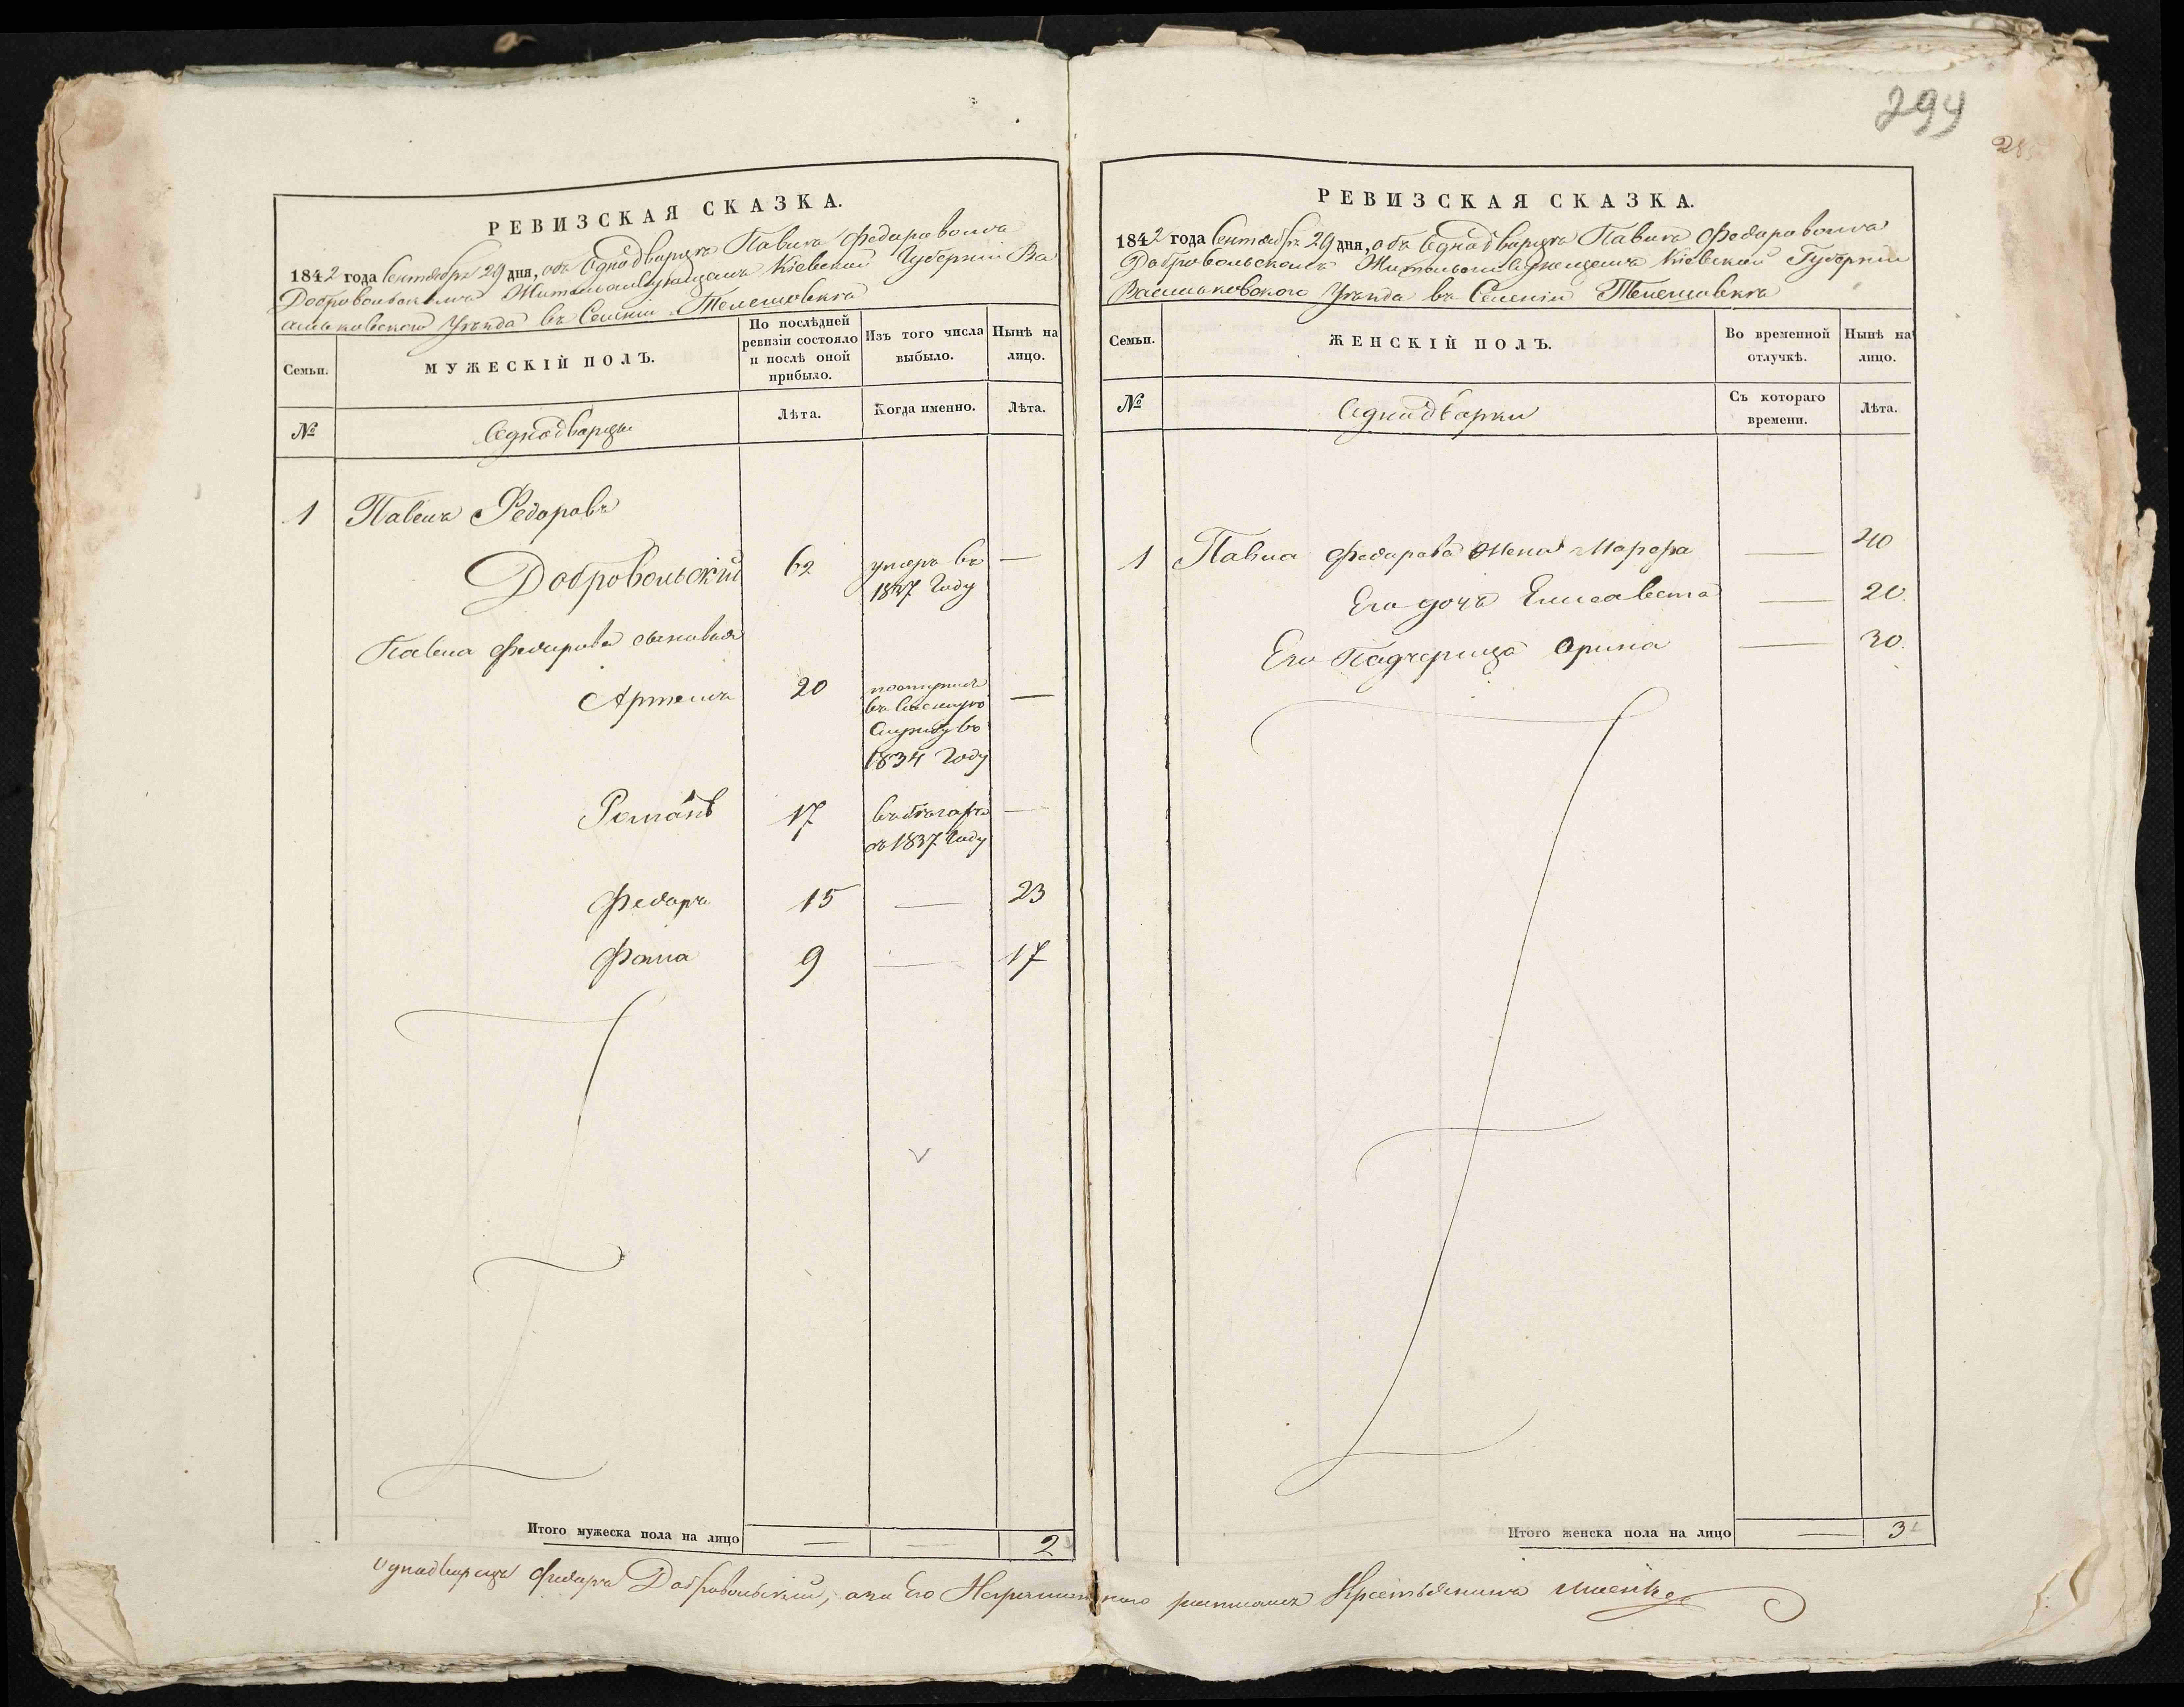 294
РЕВИЗСКАЯ СКАЗКА.
1842 года Сентября 29 дня, объ Однодворце Павлѣ Федоровомъ
Добровольскомъ Жительствующемъ Кіевской Губерніи Ва
сильковского Уѣзда въ Селеніи Телешовкѣ
Семьи.
МУЖЕСКІЙ ПОЛЪ.
По послѣдней ревизіи состояло и послѣ оной прибыло.
Изъ того числа выбыло.
Нынѣ на лицо.
№
Однодворцы
Лѣта.
Когда именно.
Лѣта.
1 Павелъ Федоровъ
Добровольскій 62 умеръ въ —
1837 Году
Павла Федорова сыновья
Артемъ 20 поступилъ —
въ
Службу въ
1834 Году
Романъ 17 въ бѣгахъ —
съ 1837 Году
Федоръ 15 — 23
Фома 9 — 17
Итого мужеска пола на лицо — — 2
РЕВИЗСКАЯ СКАЗКА.
1842 года Сентября 29 дня, объ Однодворце Павлѣ Федоровомъ
Добровольскомъ Жительствующемъ Кіевской Губерніи
Васильковского Уѣзда въ Селеніи Телешовкѣ
Семьи.
ЖЕНСКІЙ ПОЛЪ.
Во временной отлучкѣ.
Нынѣ на лицо.
№
Однодворки
Съ котораго времени.
Лѣта.
1 Павла Федорова жена Марфа — 40
Его дочь Елисавета — 20.
Его Падчерица Орина — 30.
Итого женска пола на лицо — 3
Однодворецъ Федоръ Добровольский, а за Его Неграмотного росписался Крестьянинъ